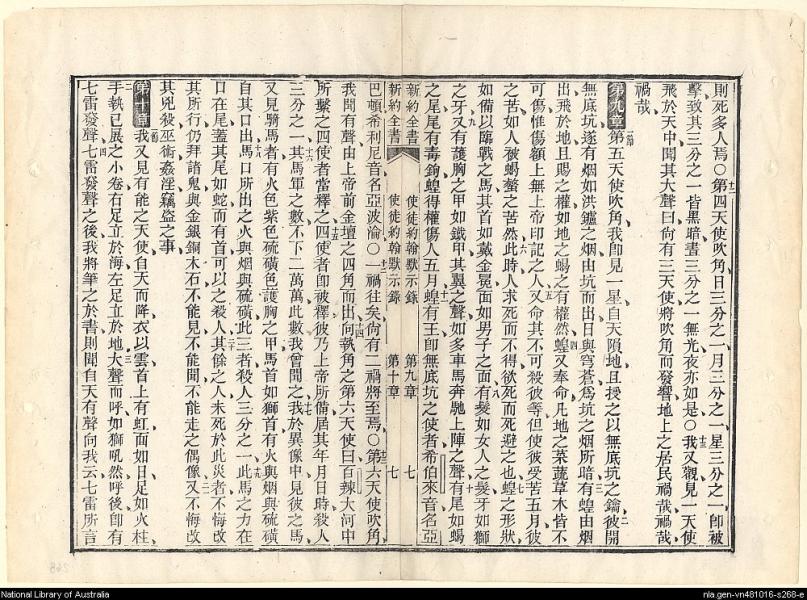 則死多人焉○十二第四天使吹角日三分之一月三分之一星三分之一卽被
擊致其三分之一皆黑暗晝三分之一無光夜亦如是○十三我又觀見一天使
飛於天中聞其大聲曰尙有三天使將吹角而發響地上之居民禍哉禍哉
禍哉
第九章一節第五天使吹角我卽見一星自天隕地且授之以無底坑之鑰二彼開
無底坑遂有烟如洪鑪之烟由坑而出日與穹蒼爲坑之烟所暗三有蝗由烟
出飛於地且賜之權如地之蝎之有權然四蝗又奉命凡地之菜蔬草木皆不
可傷惟傷額上無上帝印記之人五又命其不可殺彼等但使彼受苦五月彼
之苦如人被蝎螫之苦然六此時人求死而不得欲死而死避之也七蝗之形狀
如備以臨戰之馬其首如戴金冕面如男子之面八有髮如女人之髮牙如獅
之牙九又有護胸之甲如鐵甲其翼之聲如多車馬奔馳上陣之聲十有尾如蝎
之尾尾有毒鉤蝗得權傷人五月十一蝗有王卽無底坑之使者希伯來音名亞
新約全書 使徒約翰默示錄 第九章 七
新約全書 使徒約翰默示錄 第十章 七
巴頓希利尼音名亞波淪○十二一禍往矣尙有二禍將至焉○十三第六天使吹角
我聞有聲由上帝前金壇之四角而出十四向執角之第六天使曰百辣大河中
所繫之四使者當釋之十五四使者卽被釋彼乃上帝所備居其年月日時殺人
三分之一十六其馬軍之數不下二萬萬此數我曾聞之十七我於異像中見彼之馬
又見騎馬者有火色紫色硫磺色護胸之甲馬首如獅首有火與烟與硫磺
自其口出十八馬口所出之火與烟與硫磺此三者殺人三分之一十九此馬之力在
口在尾蓋其尾如蛇而有首可以之殺人二十其餘之人未死於此災者不悔改
其所行仍拜諸鬼與金銀銅木石不能見不能聞不能走之偶像二一又不悔改
其兇殺巫術姦淫竊盜之事
第十章一節我又見有能之天使自天而降衣以雲首上有虹面如日足如火柱
二手執已展之小卷右足立於海左足立於地三大聲而呼如獅吼然呼後卽有
七雷發聲四七雷發聲之後我將筆之於書則聞自天有聲向我云七雷所言
National Library of Australia
nla.gen-vn481016-s268-e